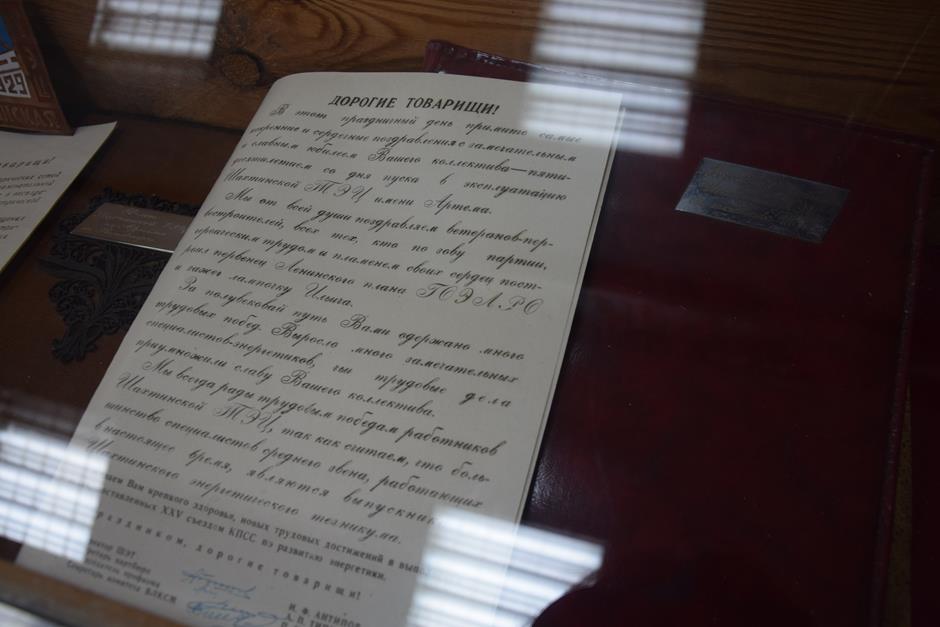 029
СКАЯ
ДОРОГИЕ ТОВАРИЩИ!
В этот праздничный день примите самые
искренние и сердечные поздравления с замечательным
и славным юбилеем Вашего коллектива — пяти-
десятилетием со дня пуска в эксплуатацию
Шахтинской ТЭЦ имени Артема.
Мы от всей души поздравляем ветеранов-пер-
востроителей, всех тех, кто по зову партии,
героическим трудом и пламенем своих сердец пост-
роил первенец Ленинского плана ГОЭЛРО
и зажег лампочку Ильича.
За полувековой путь Вами одержано много
трудовых побед. Выросло много замечательных
специалистов-энергетиков, чьи трудовые дела
приумножили славу Вашего коллектива.
Мы всегда рады трудовым победам работников
Шахтинской ТЭЦ, так как считаем, что боль-
шинство специалистов среднего звена, работающих
в настоящее время, являются выпускник
Шахтинского энергетического техникума.
Вам крепкого здоровья, новых трудовых достижений в выпол
XXV съездом КПСС по развитию энергетики.
раздником, дорогие товарищи!
ШЭТ
партбюро
профкома
Секретарь комитета ВЛКСМ
И. Ф. АНТИПОВ